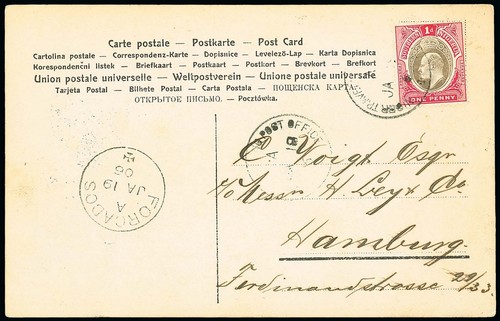 Carte postale — Postkarte — Post Card
Cartolina postale — Correspondenz-Karte — Dopisnice — Levelező-Lap — Karta Dopisnica
Korespondenční listek — Briefkaart — Postkaart — Postkort — Brevkort — Brefkort
Union postale universelle — Weltpostverein — Unione postale universale
Tarjeta Postal — Bilhete Postal — Carta Postala — ПОЩЕНСКА КАРТА
ОТКРЫТОЕ ПИСЬМО. — Pocztówka.
1d
SOUTHERN NIGERIA
ONE PENNY
JA
POST OFFICE
JA
C. Voigt Esqr
c/o Messrs H. Leyx Co
Hamburg.
Ferdinandstrasse 29/33.
FORCADOS
A
JA 19
06